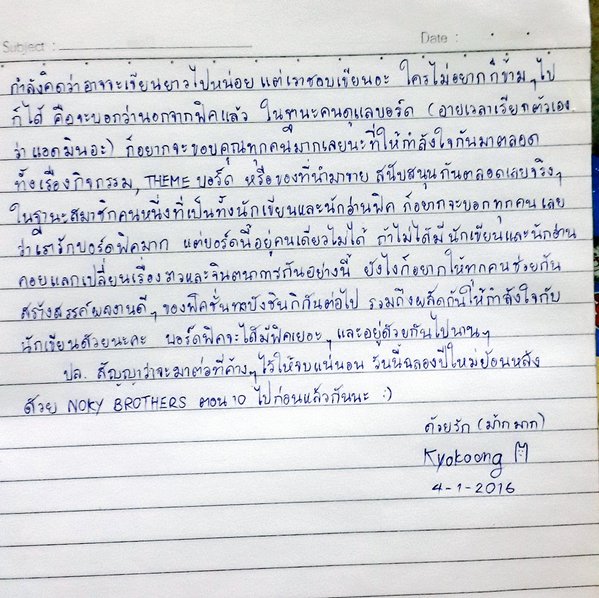 Subject : Date :
กำลังคิดว่าอาจจะเขียนยาวไปหน่อย แต่เราชอบเขียนอะ ใครไม่อยากก็ข้ามๆไป
ก็ได้ คือจะบอกว่านอกจากฟิคแล้ว ในฐานะคนดูแลบอร์ด (อายเวลาเรียกตัวเอง
ว่าแอดมินอะ) ก็อยากจะขอบคุณทุกคนมากเลยนะที่ให้กำลังใจกันมาตลอด
ทั้งเรื่องกิจกรรม, THEME บอร์ด หรือของที่นำมาขาย สนับสนุนกันตลอดเลยจริงๆ
ในฐานะสมาชิกคนหนึ่งที่เป็นทั้งนักเขียนและนักอ่านฟิค ก็อยากจะบอกทุกคนเลย
ว่าเรารักบอร์ดฟิคมาก แต่บอร์ดนี้อยู่คนเดียวไม่ได้ ถ้าไม่ได้มีนักเขียนและนักอ่าน
คอยแลกเปลี่ยนเรื่องราวและจินตนาการกันอย่างนี้ ยังไงก็อยากให้ทุกคนช่วยกัน
สร้างสรรค์ผลงานดีๆของฟิคชั่นทงบังชินกิกันต่อไป รวมถึงผลัดกันให้กำลังใจกับ
นักเขียนด้วยนะคะ บอร์ดฟิคจะได้มีฟิคเยอะๆและอยู่ด้วยกันไปนานๆ
ปล. สัญญาว่าจะมาต่อที่ค้างๆไว้ให้จบแน่นอน วันนี้ฉลองปีใหม่ย้อนหลัง
ด้วย NOKY BROTHERS ตอน 10 ไปก่อนแล้วกันนะ :)
ด้วยรัก (ม้ากมาก)
Kyokoong
4-1-2016